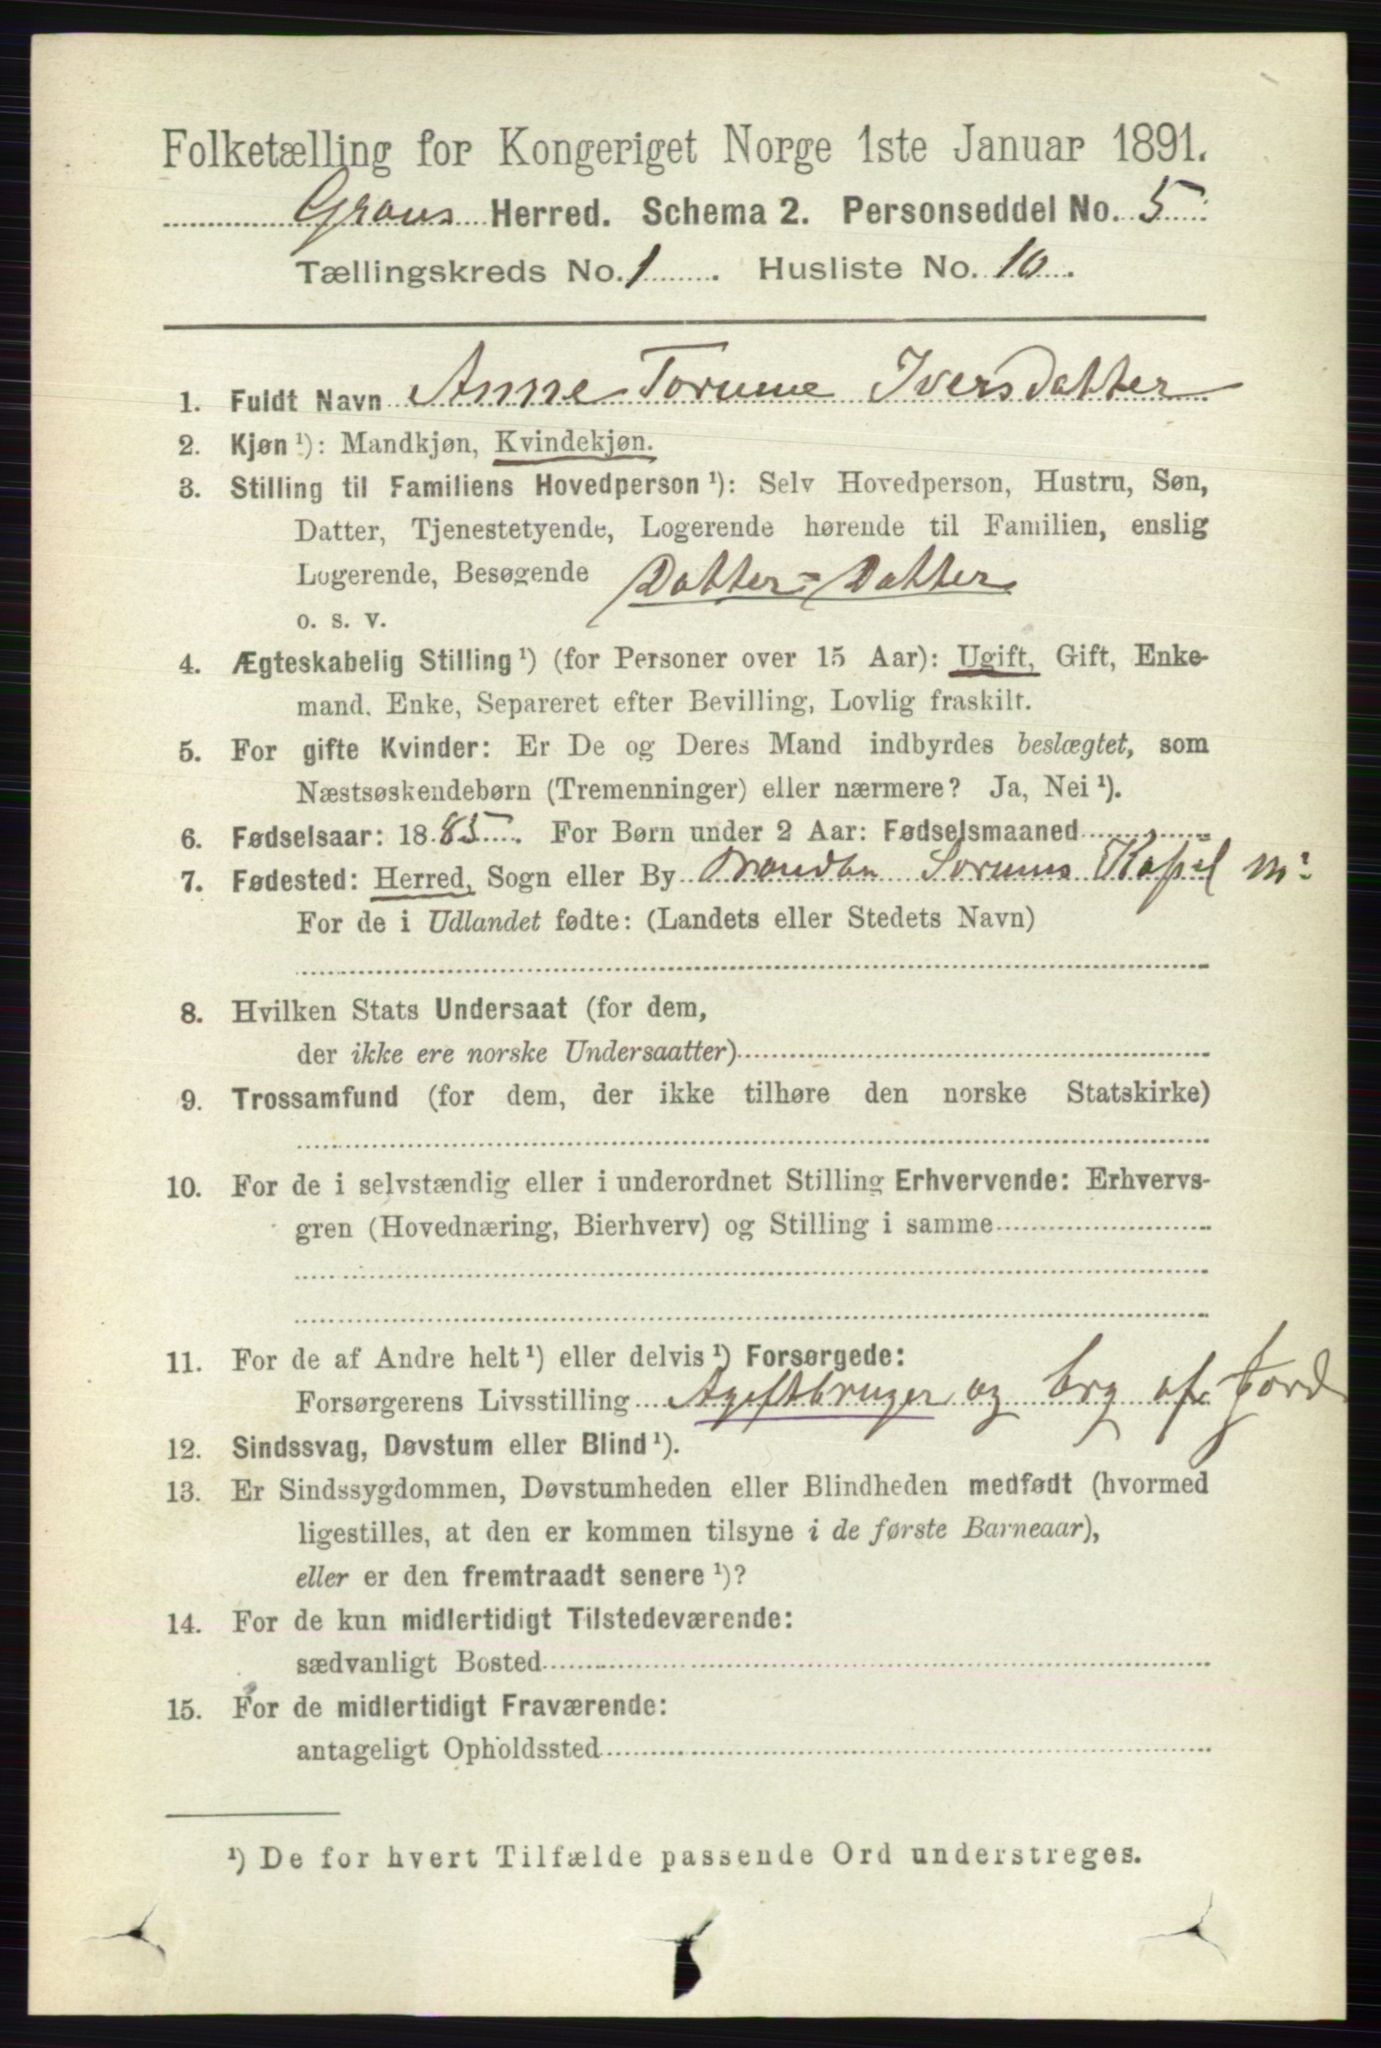 Folketælling for Kongeriget Norge 1ste Januar 1891.
Grans Herred. Schema 2. Personseddel No. 5
Tællingskreds No. 1. Husliste No. 10.
1. Fuldt Navn Anne Torunne Iversdatter
2. Kjøn ¹): Mandkjøn, Kvindekjøn.
3. Stilling til Familiens Hovedperson ¹): Selv Hovedperson, Hustru, Søn,
Datter, Tjenestetyende, Logerende hørende til Familien, enslig
Logerende, Besøgende Datter-Datter
o. s. v.
4. Ægteskabelig Stilling ¹) (for Personer over 15 Aar): Ugift, Gift, Enke-
mand, Enke, Separeret efter Bevilling, Lovlig fraskilt.
5. For gifte Kvinder: Er De og Deres Mand indbyrdes beslægtet, som
Næstsøskendebørn (Tremenninger) eller nærmere? Ja, Nei ¹).
6. Fødselsaar: 1885. For Børn under 2 Aar: Fødselsmaaned
7. Fødested: Herred, Sogn eller By Brandbu Sørums Kapel
For de i Udlandet fødte: (Landets eller Stedets Navn)
8. Hvilken Stats Undersaat (for dem,
der ikke ere norske Undersaatter)
9. Trossamfund (for dem, der ikke tilhøre den norske Statskirke)
10. For de i selvstændig eller i underordnet Stilling Erhvervende: Erhvervs-
gren (Hovednæring, Bierhverv) og Stilling i samme
11. For de af Andre helt ¹) eller delvis ¹) Forsørgede:
Forsørgerens Livsstilling og brg af Jord
12. Sindssvag, Døvstum eller Blind ¹).
13. Er Sindssygdommen, Døvstumheden eller Blindheden medfødt (hvormed
ligestilles, at den er kommen tilsyne i de første Barneaar),
eller er den fremtraadt senere ¹)?
14. For de kun midlertidigt Tilstedeværende:
sædvanligt Bosted
15. For de midlertidigt Fraværende:
antageligt Opholdssted
¹) De for hvert Tilfælde passende Ord understreges.